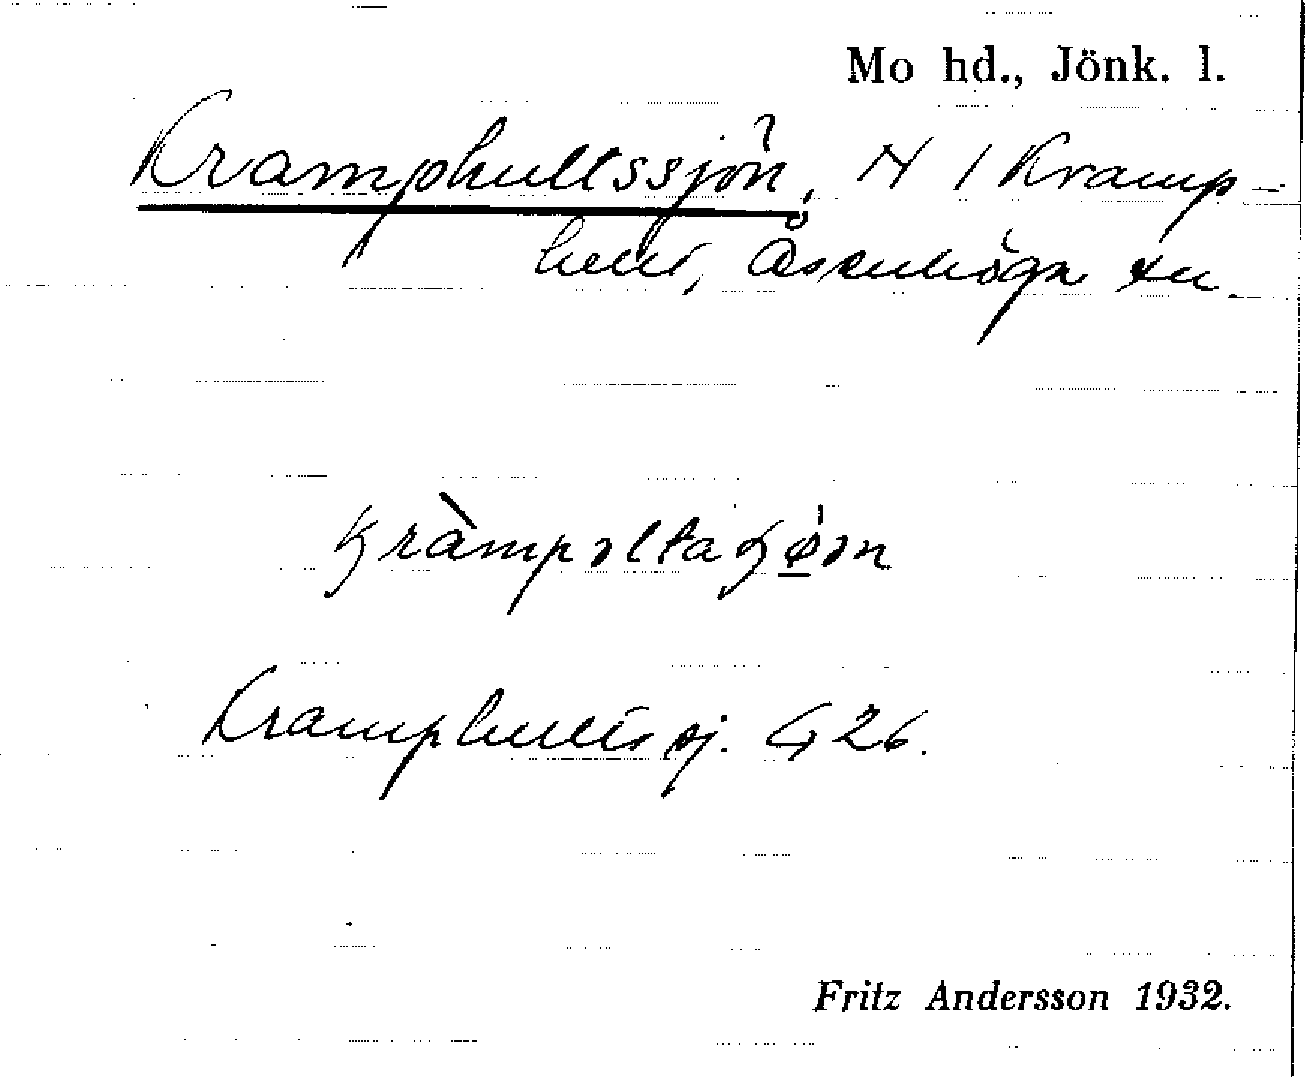 Mo hd., Jönk. l.
Kramphultssjön, N / Kramp-
hult, Åsenhöga sn.
Kramphultssj. G 26.
Fritz Andersson 1932.